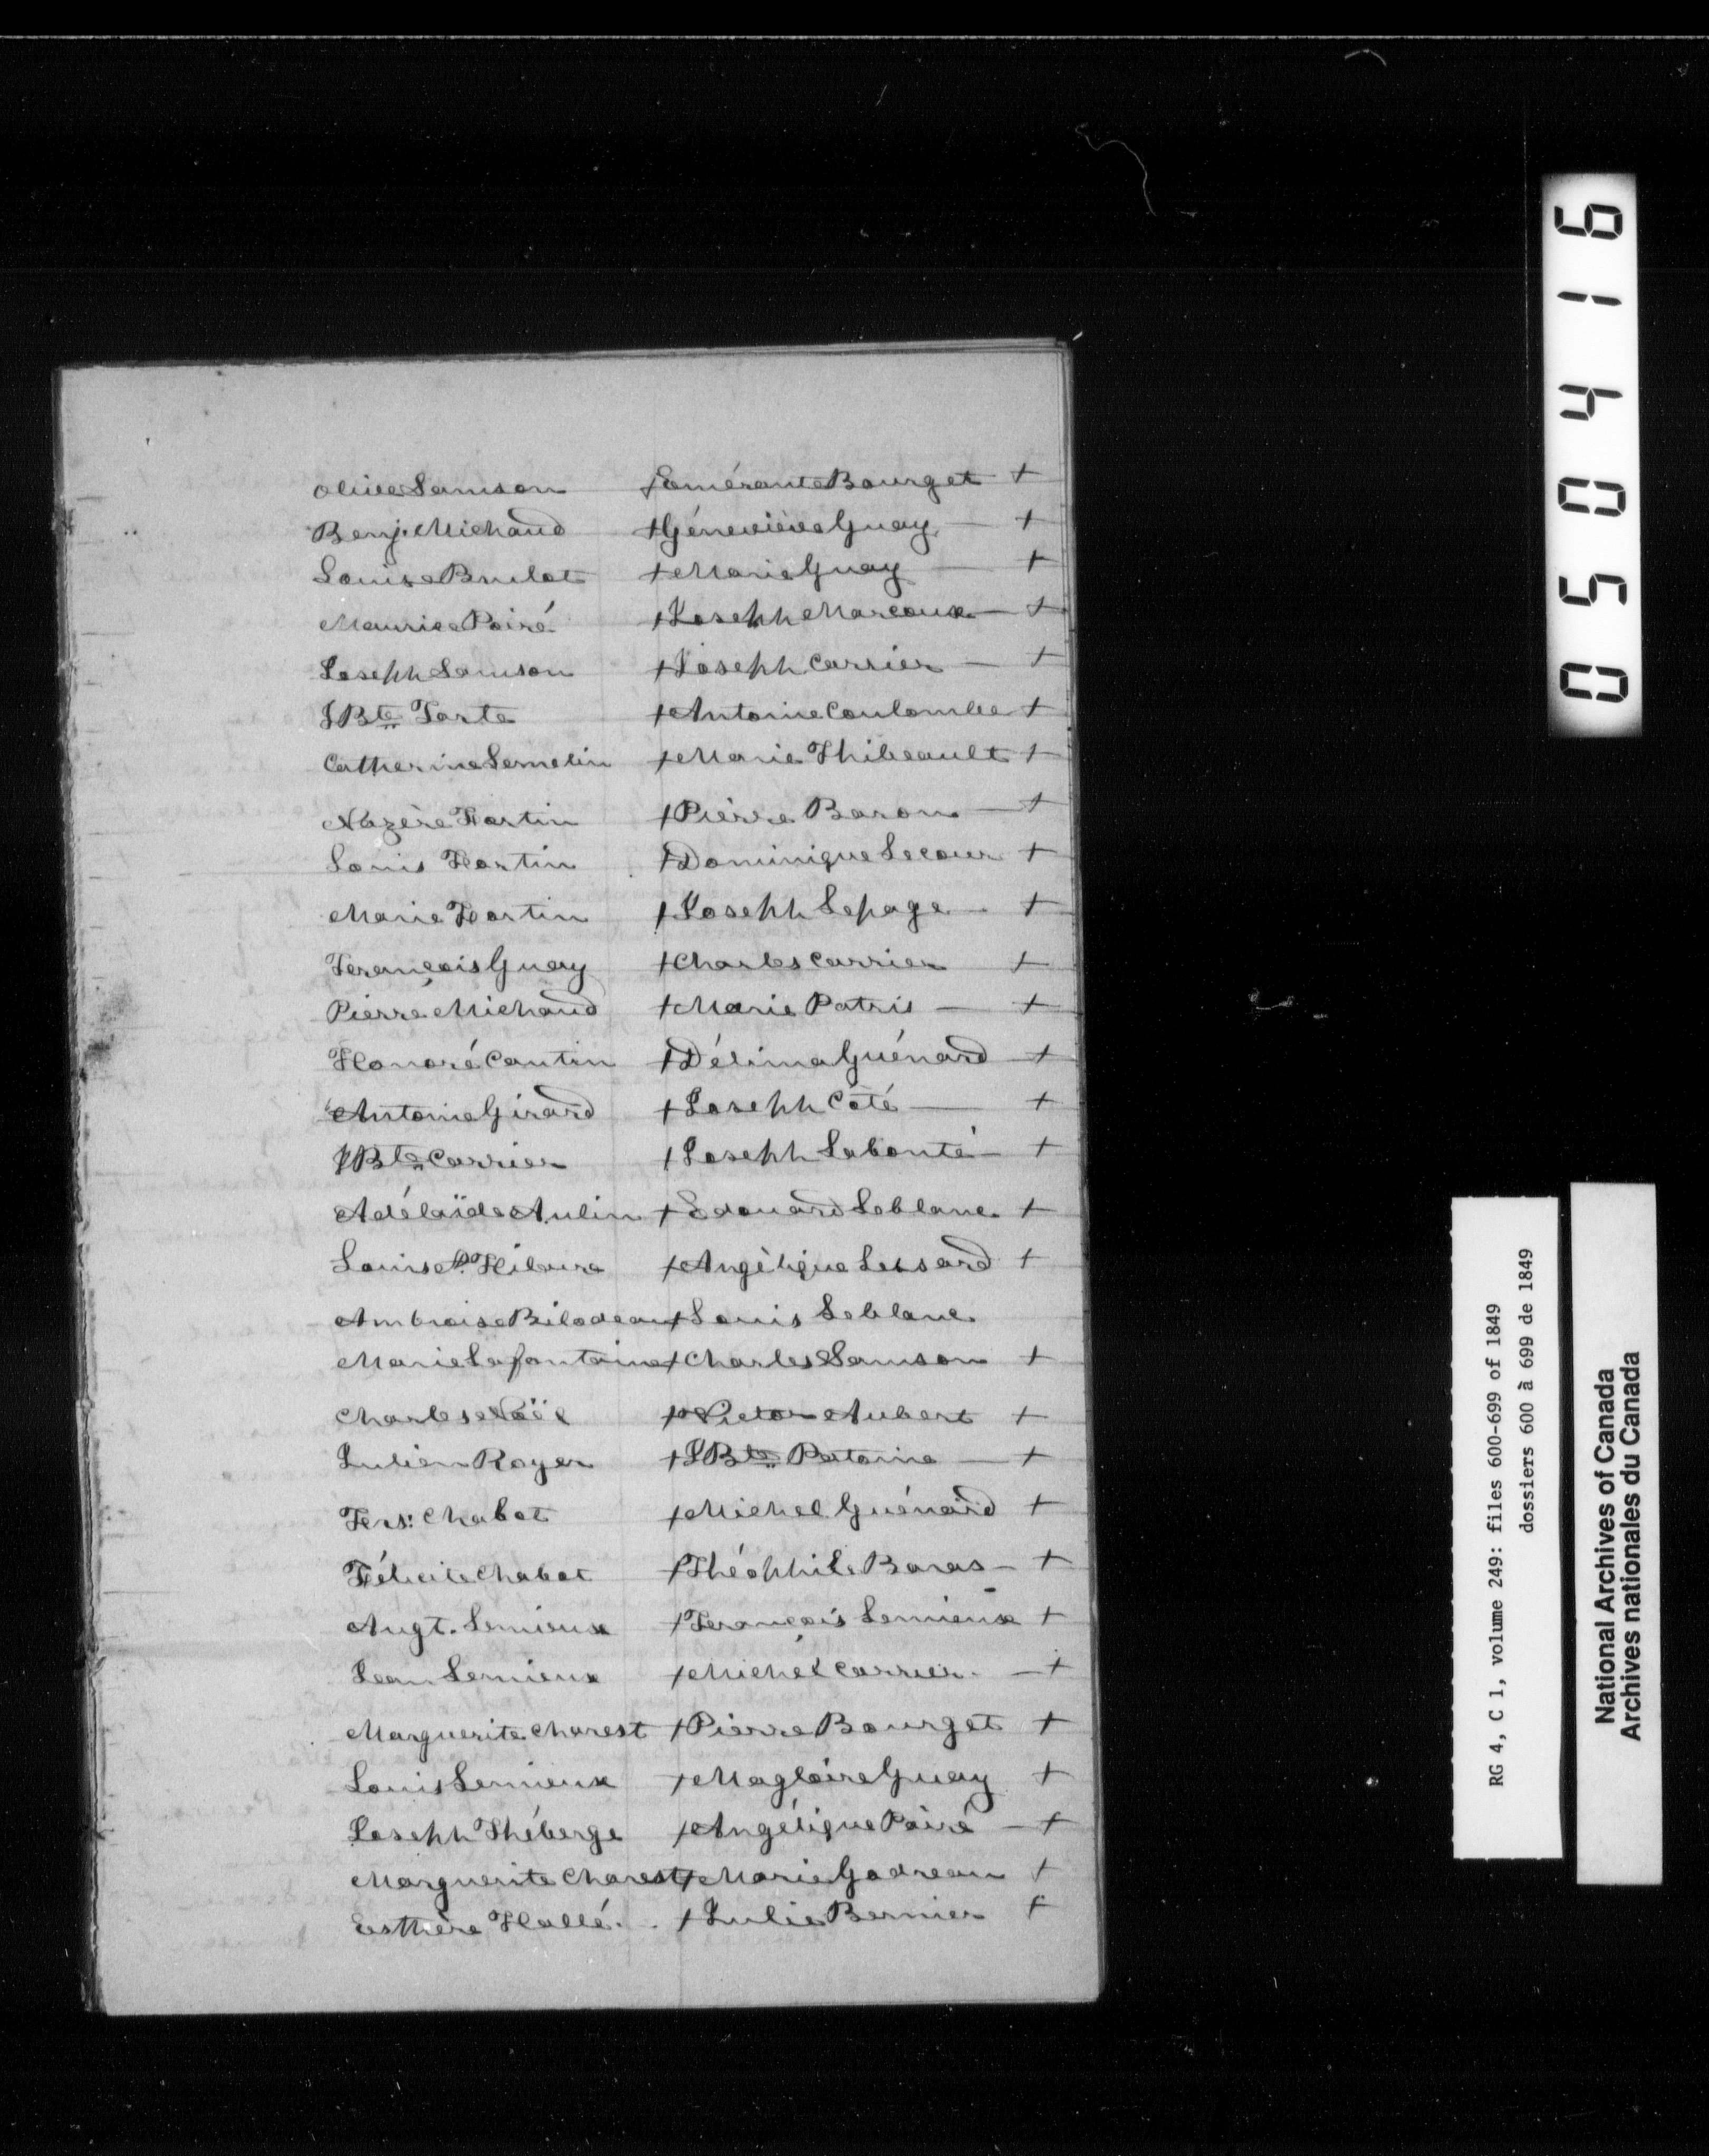 Olive Samson + Emérante Bourget +
Benj. Michaud + Généviève Guay — +
Louise Brulot + Marie Guay — +
Maurice Poiré + Joseph Marcoux — +
Joseph Samson + Joseph Carrier — +
J Bte Torte + Antoine Coulombe +
Catherine Lemelin + Marie Thibeault +
Nazère Fortin + Pierre Baron — +
Louis Fortin + Dominique Lecour +
Marie Fortin + Joseph Lepage — +
François Guay + Charles Carrier +
Pierre Michaud + Marie Patris — +
Honoré Cantin + Délima Guénard — +
Antoine Girard + Joseph Côté — +
J Bte Carrier + Joseph Labonté — +
Adélaïde Aulin + Edouard Leblanc +
Louise St. Hilaire + Angèlique Lessard +
Ambroise Bilodeau + Louis Leblanc
Marie Lafontaine + Charles Samson +
Charles Noël + Victor Aubert +
Julien Royer + J Bte — +
Frs: Chabot + Michel Guénard +
Félicité Chabot + Théophile Baras — +
Augt. Lemieux + François Lemieux +
Jean Lemieux + Michel Carrier. — +
Marguerite Charest + Pierre Bourget +
Louis Lemieux + Magloire Guay +
Joseph Théberge + Angélique Poiré — +
Marguerite Charest + Marie Gadreau +
Esthère Hallé. + Julie Bernier +
050416
RG 4, C 1, volume 249: files 600-699 of 1849
dossiers 600 à 699 de 1849
National Archives of Canada
Archives nationales du Canada